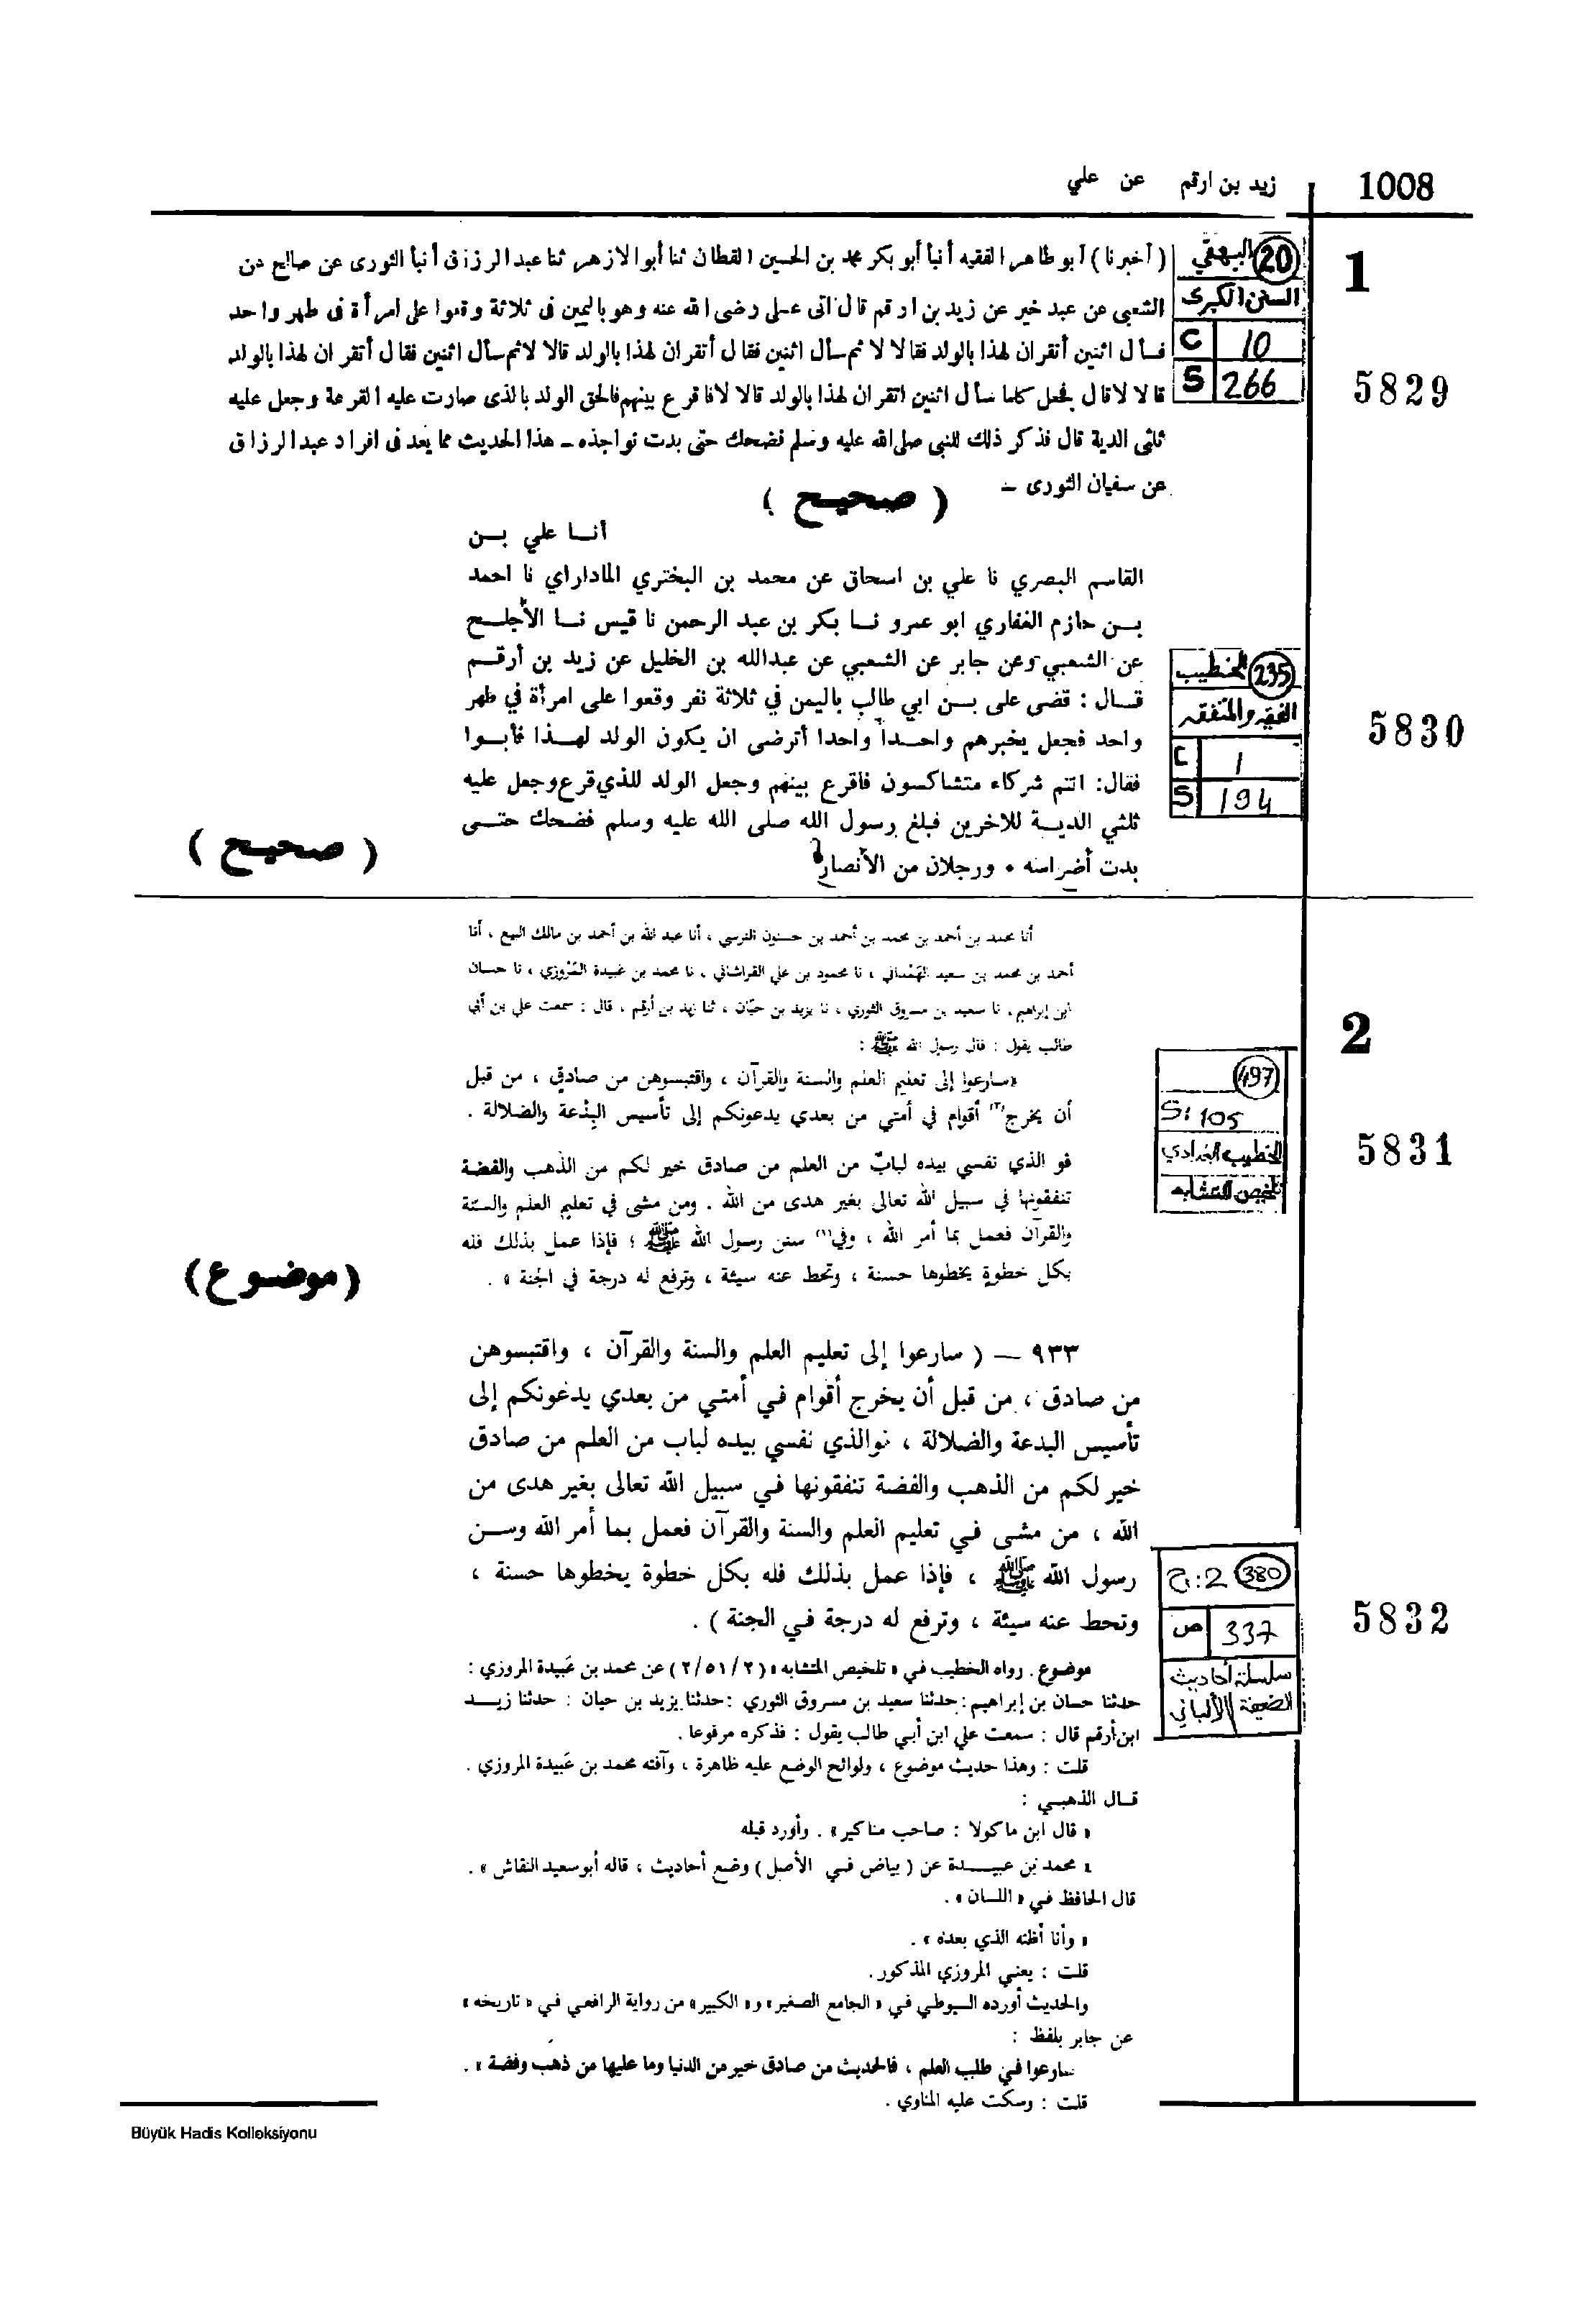 1008
زيد بن ارقم عن علي
1
20 البيهقي
السنن الكبرى
C 10
S 266
5829
( أخبرنا ) أبو طاهر الفقيه أنبأ أبو بكر محمد بن الحسين القطان ثنا أبو الازهر ثنا عبد الرزاق أنبأ الثورى عن صالح عن
الشعبى عن عبد خير عن زيد بن ارقم قال اتى على رضى الله عنه وهو باليمن فى ثلاثة وقعوا على امرأة فى طهر واحد
فسأل اثنين أتقران لهذا بالولد فقالا لا ثم سأل اثنين فقال أتقران لهذا بالولد قالا لا ثم سأل اثنين فقال أتقران لهذا بالولد
قالا لا قال فجعل كلما سأل اثنين اتقران لهذا بالولد قالا لا فاقرع بينهم فالحق الولد بالذى صارت عليه القرعة وجعل عليه
ثلثى الدية قال فذكر ذلك للنبى صلى الله عليه وسلم فضحك حتى بدت نواجذه ـ هذا الحديث مما يعد فى افراد عبد الرزاق
عن سفيان الثورى ـ
( صحيح )
أنـا علي بـن
القاسم البصري نا علي بن اسحاق عن محمد بن البختري الماداراي نا احمد
بـن حازم الغفاري ابو عمرو نـا بكر بن عبد الرحمن نا قيس نـا الأجلـح
عن الشعبي وعن جابر عن الشعبي عن عبدالله بن الخليل عن زيد بن أرقـم
قـال : قضى على بـن ابي طالب باليمن في ثلاثة نفر وقعوا على امرأة في طهر
واحد فجعل يخبرهم واحـداً واحدا أترضى ان يكون الولد لهـذا فأبـوا
فقال: انتم شركاء متشاكسون فاقرع بينهم وجعل الولد للذي قرع وجعل عليه
ثلثي الديـة للاخرين فبلغ رسول الله صلى الله عليه وسلم فضحك حتـى
بدت أضراسه ٠ ورجلان من الأنصار
( صحيح )
235 الخطيب
الفقيه والمتفقه
C 1
S 194
5830
أنا محمد بن أحمد بن محمد بن أحمد بن حسنون النرسي ، أنا عبد الله بن أحمد بن مالك البيع ، أنا
أحمد بن محمد بن سعيد الهَمْداني ، نا محمود بن علي القراشاني ، نا محمد بن عَبيدة المَرْوزي ، نا حسان
ابن إبراهيم ، نا سعيد بن مسروق الثوري ، نا يزيد بن حيّان ، ثنا زيد بن أرقم ، قال : سمعت علي بن أبي
طالب يقول : قال رسول الله ﷺ :
«سارعوا إلى تعليم العلم والسنة والقرآن ، واقتبسوهن من صادقٍ ، من قبل
أن يخرج(٣) أقوام في أمتي من بعدي يدعونكم إلى تأسيس البِدْعة والضلالة .
فو الذي نفسي بيده لبابٌ من العلم من صادق خير لكم من الذهب والفضة
تنفقونها في سبيل الله تعالى بغير هدى من الله . ومن مشى في تعليم العلم والسنّة
والقرآن فعمل بما أمر الله ، وفي(١) سنن رسول الله ﷺ ؛ فإذا عمل بذلك فله
بكل خطوةٍ يخطوها حسنة ، وتحط عنه سيئة ، وترفع له درجة في الجنة » .
(موضوع)
2
497
S: 105
الخطيب البغدادي
تلخيص المتشابه
5831
٩٣٣ — ( سارعوا إلى تعليم العلم والسنة والقرآن ، واقتبسوهن
من صادق ، من قبل أن يخرج أقوام في أمتي من بعدي يدعونكم إلى
تأسيس البدعة والضلالة ، فوالذي نفسي بيده لباب من العلم من صادق
خير لكم من الذهب والفضة تنفقونها في سبيل الله تعالى بغير هدى من
الله ، من مشى في تعليم العلم والسنة والقرآن فعمل بما أمر الله وسـن
رسول الله ﷺ ، فإذا عمل بذلك فله بكل خطوة يخطوها حسنة ،
وتحط عنه سيئة ، وترفع له درجة في الجنة ) .
380 ج: 2
ص 337
سلسلة أحاديث
الضعيفة الألباني
5832
موضوع . رواه الخطيب في « تلخيص المتشابه » ( ٢ / ٥١ / ٢ ) عن محمد بن عَبيدة المروزي :
حدثنا حسان بن إبراهيم : حدثنا سعيد بن مسروق الثوري : حدثنا يزيد بن حيان : حدثنا زيـد
ابن أرقم قال : سمعت علي ابن أبي طالب يقول : فذكره مرفوعا .
قلت : وهذا حديث موضوع ، ولوائح الوضع عليه ظاهرة ، وآفته محمد بن عَبيدة المروزي .
قـال الذهبـي :
« قال ابن ماكولا : صاحب مناكير » . وأورد قبله
« محمد بن عبيـدة عن ( بياض فـي الأصل ) وضع أحاديث ، قاله أبو سعيد النقاش » .
قال الحافظ في « اللسان » .
« وأنا أظنه الذي بعده » .
قلت : يعني المروزي المذكور .
والحديث أورده السيوطي في « الجامع الصغير » و« الكبير » من رواية الرافعي في « تاريخه »
عن جابر بلفظ :
سارعوا فـي طلب العلم ، فالحديث من صادق خير من الدنيا وما عليها من ذهب وفضة » .
قلت : وسكت عليه المناوي .
Büyük Hadis Kolleksiyonu